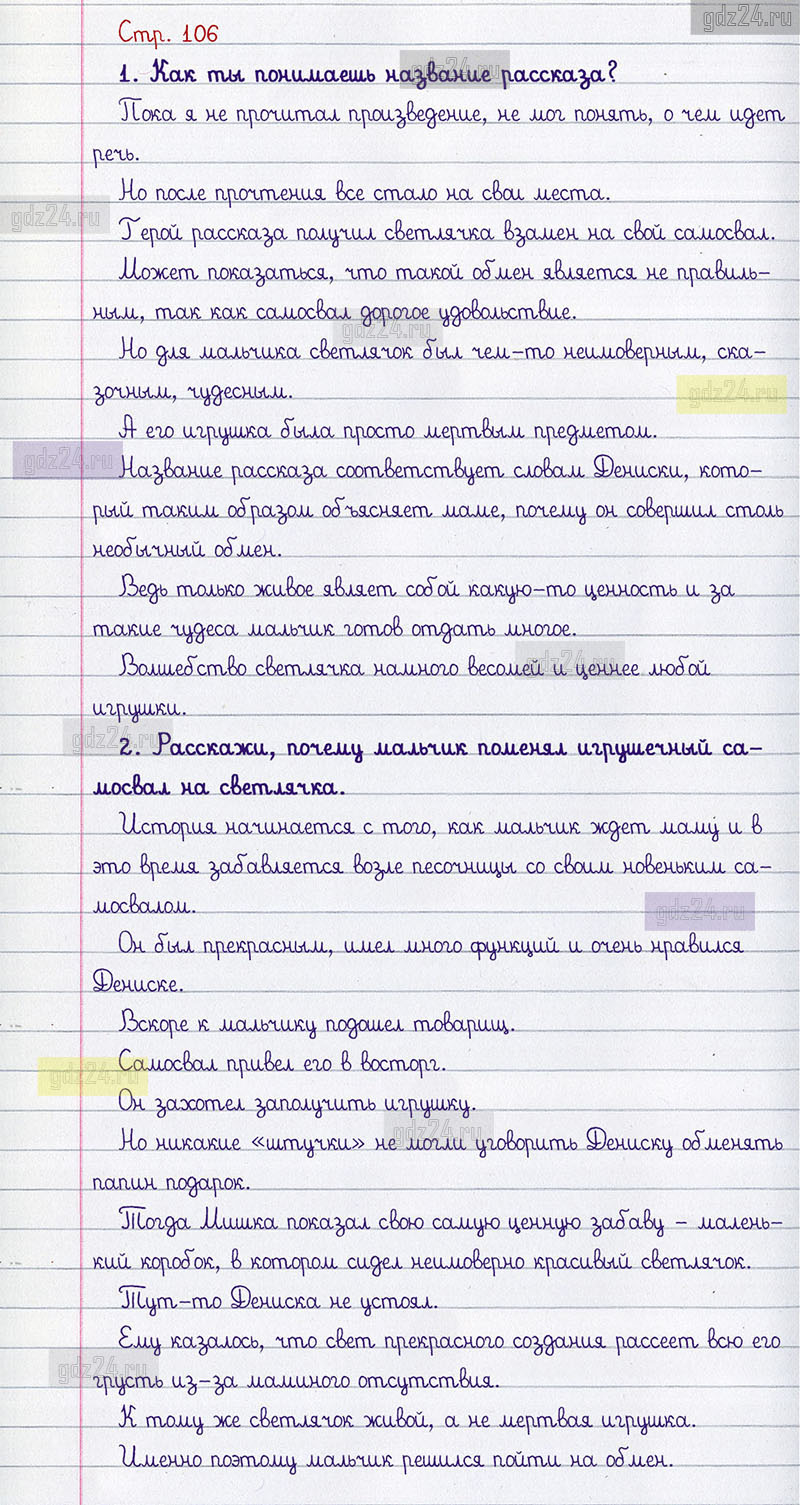 gdz24.ru
Стр. 106
gdz24.ru
1. Как ты понимаешь название рассказа?
Пока я не прочитал произведение, не мог понять, о чем идет
речь.
Но после прочтения все стало на свои места.
gdz24.ru
Герой рассказа получил светлячка взамен на свой самосвал.
Может показаться, что такой обмен является не правиль-
ным, так как самосвал дорогое удовольствие.
gdz24.ru
Но для мальчика светлячок был чем-то неимоверным, ска-
зочным, чудесным.
gdz24.ru
А его игрушка была просто мертвым предметом.
gdz24.ru
Название рассказа соответствует словам Дениски, кото-
рый таким образом объясняет маме, почему он совершил столь
необычный обмен.
Ведь только живое являет собой какую-то ценность и за
такие чудеса мальчик готов отдать многое.
gdz24.ru
Волшебство светлячка намного весомей и ценнее любой
игрушки.
gdz24.ru
2. Расскажи, почему мальчик поменял игрушечный са-
мосвал на светлячка.
История начинается с того, как мальчик ждет маму и в
это время забавляется возле песочницы со своим новеньким са-
мосвалом.
gdz24.ru
Он был прекрасным, имел много функций и очень нравился
Дениске.
Вскоре к мальчику подошел товарищ.
Самосвал привел его в восторг.
gdz24.ru
Он захотел заполучить игрушку.
gdz24.ru
Но никакие «штучки» не могли уговорить Дениску обменять
папин подарок.
Тогда Мишка показал свою самую ценную забаву – малень-
кий коробок, в котором сидел неимоверно красивый светлячок.
Тут-то Дениска не устоял.
Ему казалось, что свет прекрасного создания рассеет всю его
gdz24.ru
грусть из-за маминого отсутствия.
К тому же светлячок живой, а не мертвая игрушка.
Именно поэтому мальчик решился пойти на обмен.